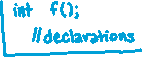 int f();
//declarations